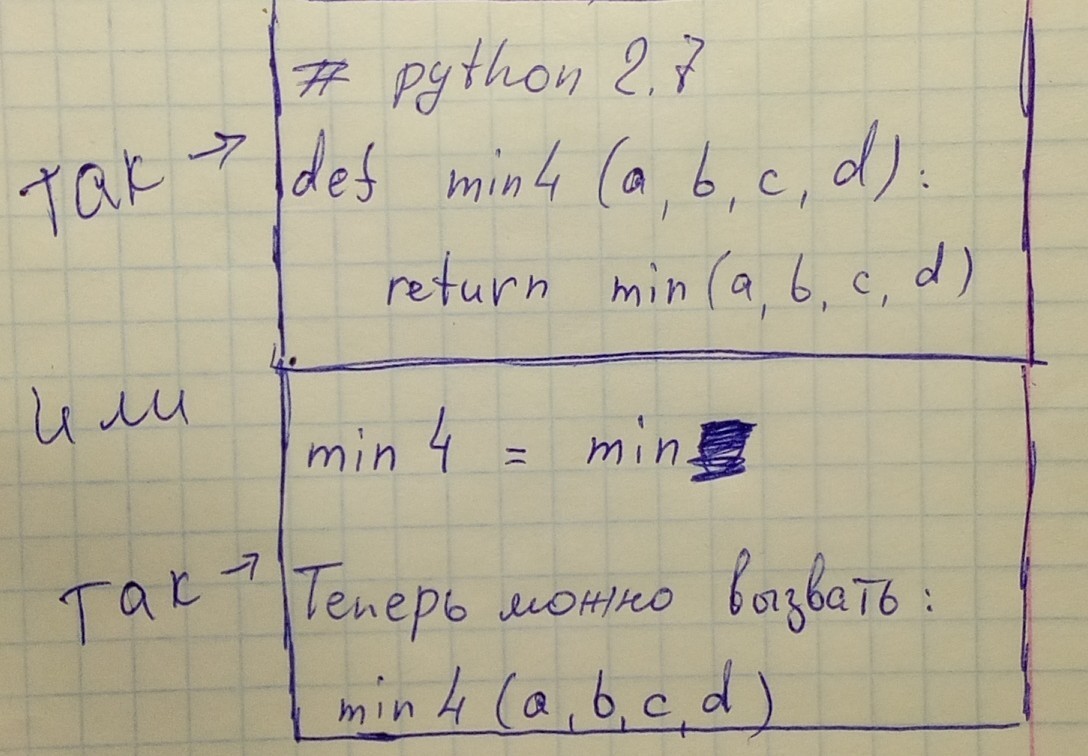 # python 2.7
так → def min4 (a, b, c, d):
return min(a, b, c, d)
или
min4 = min
так → Теперь можно вызвать:
min4 (a, b, c, d)